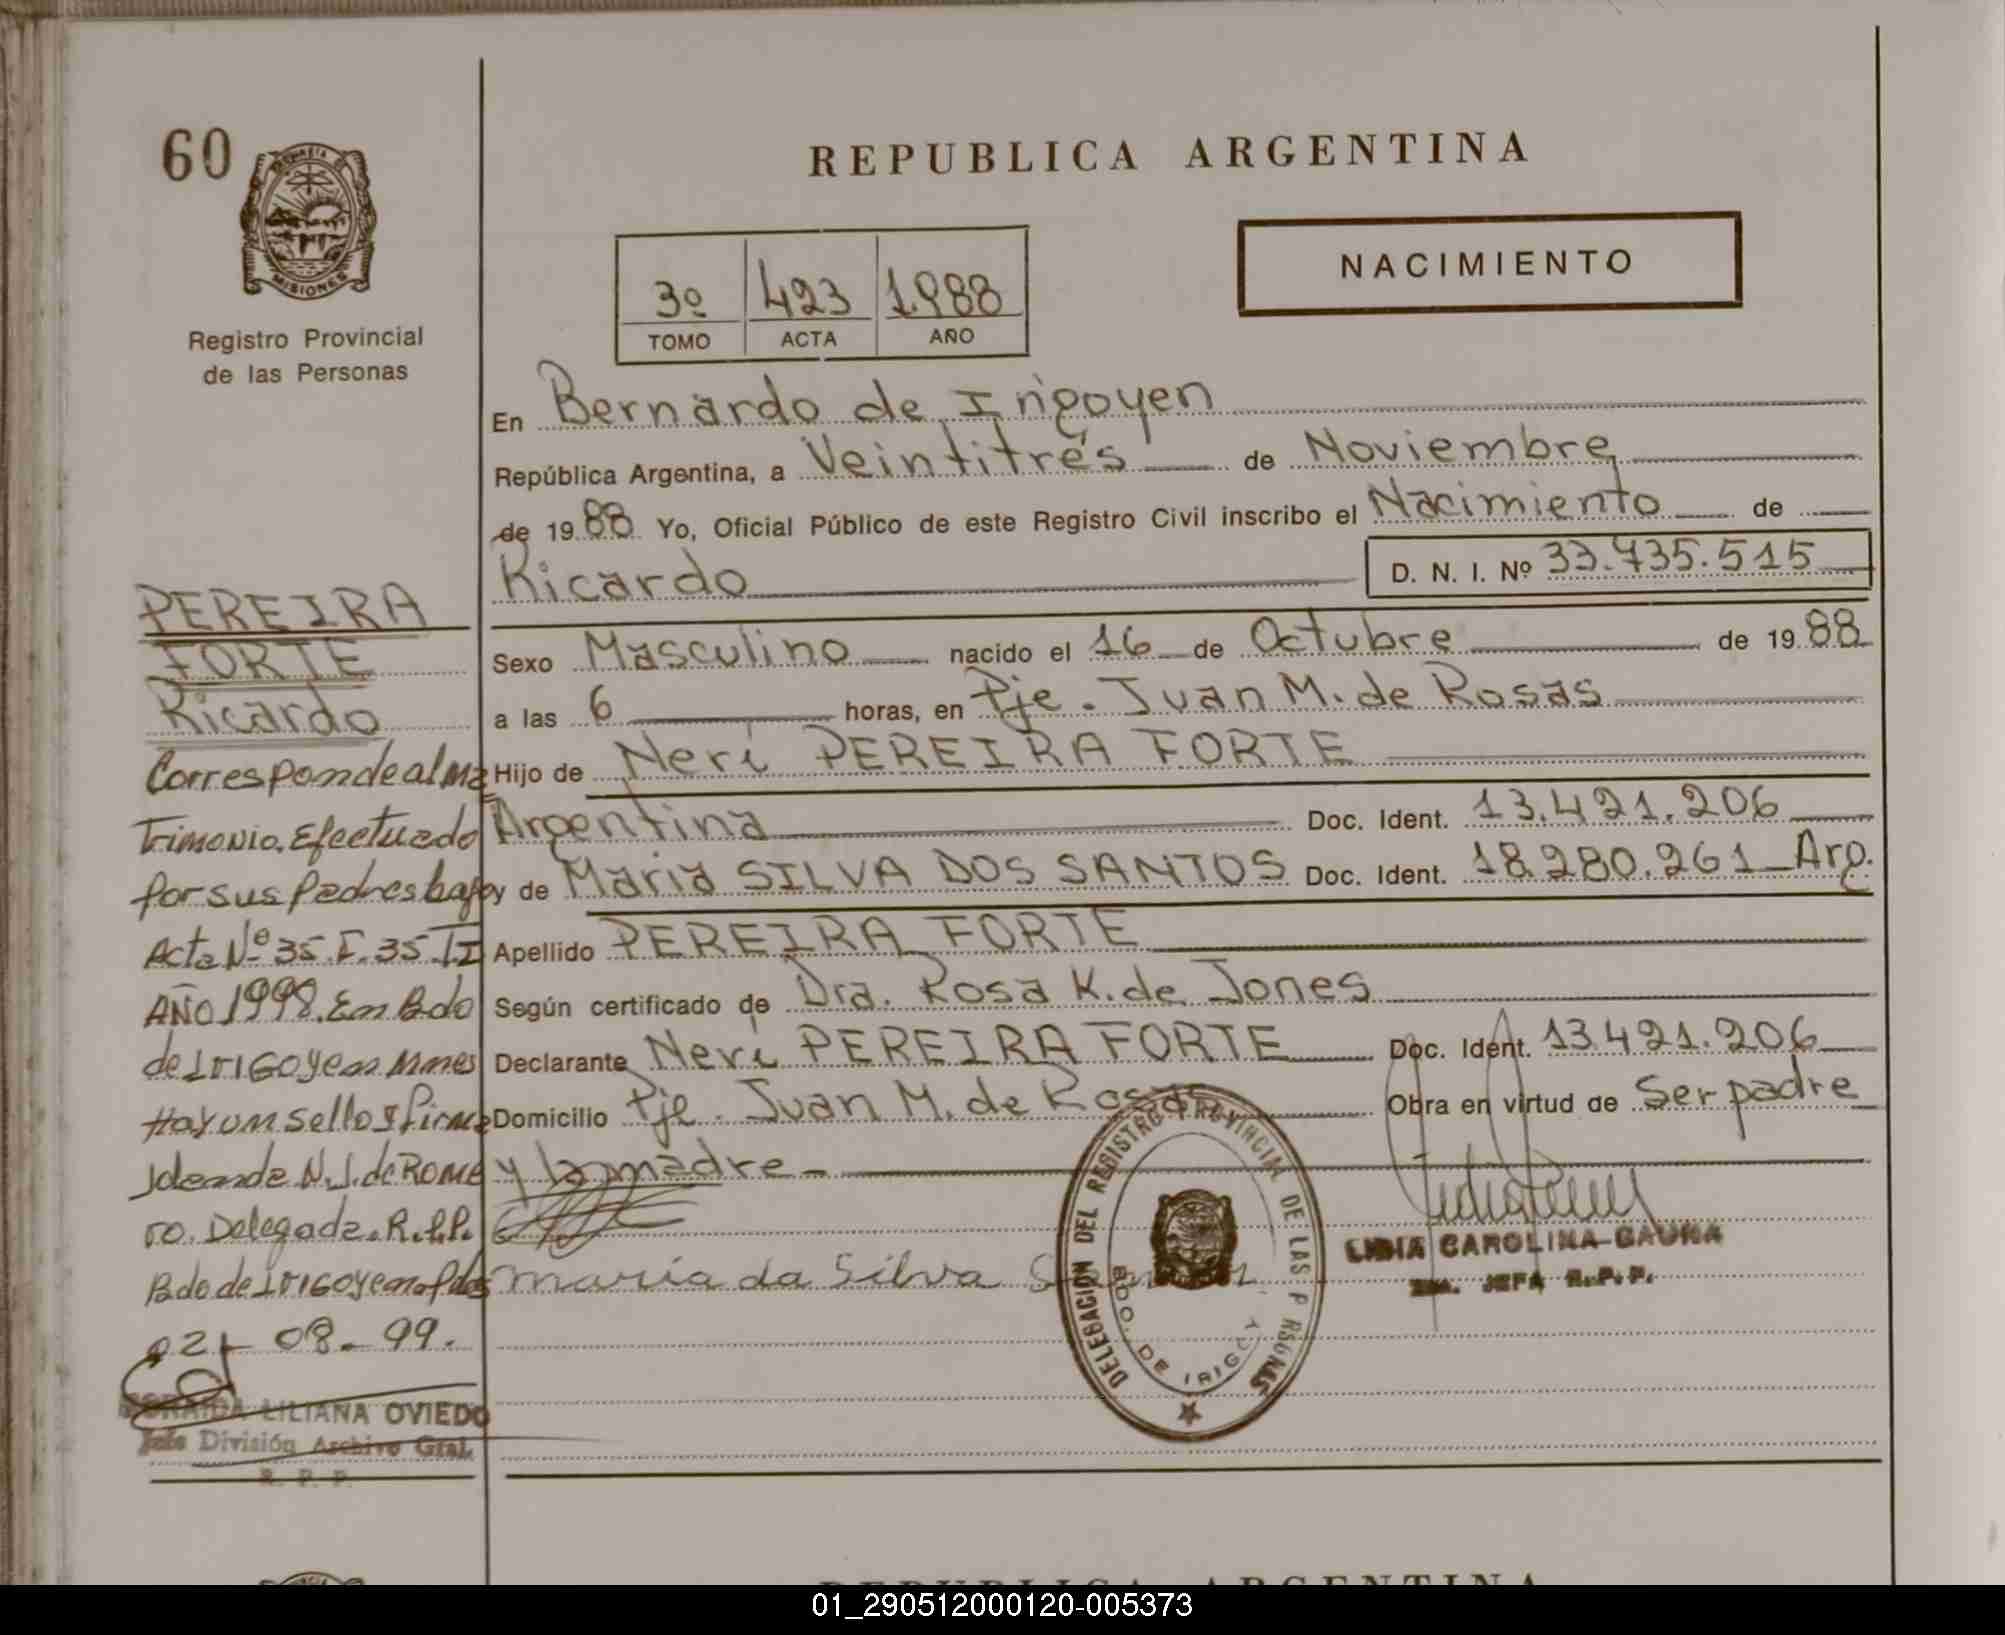 60
REPUBLICA ARGENTINA
PROVINCIA DE
MISIONES
NACIMIENTO
3º 423 1988
TOMO ACTA AÑO
Registro Provincial
de las Personas
En Bernardo de Irigoyen
República Argentina, a Veintitrés de Noviembre
de 19 88 Yo, Oficial Público de este Registro Civil inscribo el Nacimiento de
Ricardo D. N. I. Nº 33.735.515
Sexo Masculino nacido el 16 de Octubre de 19 88
a las 6 horas, en Pje. Juan M. de Rosas
Hijo de Neri PEREIRA FORTE
Argentina Doc. Ident. 13.421.206
y de Maria SILVA DOS SANTOS Doc. Ident. 18.280.261 Arg.
Apellido PEREIRA FORTE
Según certificado de Dra. Rosa K. de Jones
Declarante Neri PEREIRA FORTE Doc. Ident. 13.421.206
Domicilio Pje. Juan M. de Rosas Obra en virtud de Ser padre
y la madre
maria da Silva
LIDIA CAROLINA GAUNA
2da. JEFA R.P.P.
DELEGACION DEL REGISTRO PROVINCIAL DE LAS P RSONAS
BDO. DE IRIGOY
PEREIRA
FORTE
Ricardo
Corresponde al Ma
trimonio. Efectuado
por sus Padres bajo
Acta Nº 35 F. 35 T.I
AÑO 1998. En Bdo
de Irigoyen Mnes
Hay un sello y firma
Jolanda N. J. de ROME
ro. Delegada. R.P.P.
Bdo de Irigoyen
02-08-99.
LILIANA OVIEDO
Jefe División Archivo Gral.
R. P. P.
REPUBLICA ARGENTINA
01_290512000120-005373